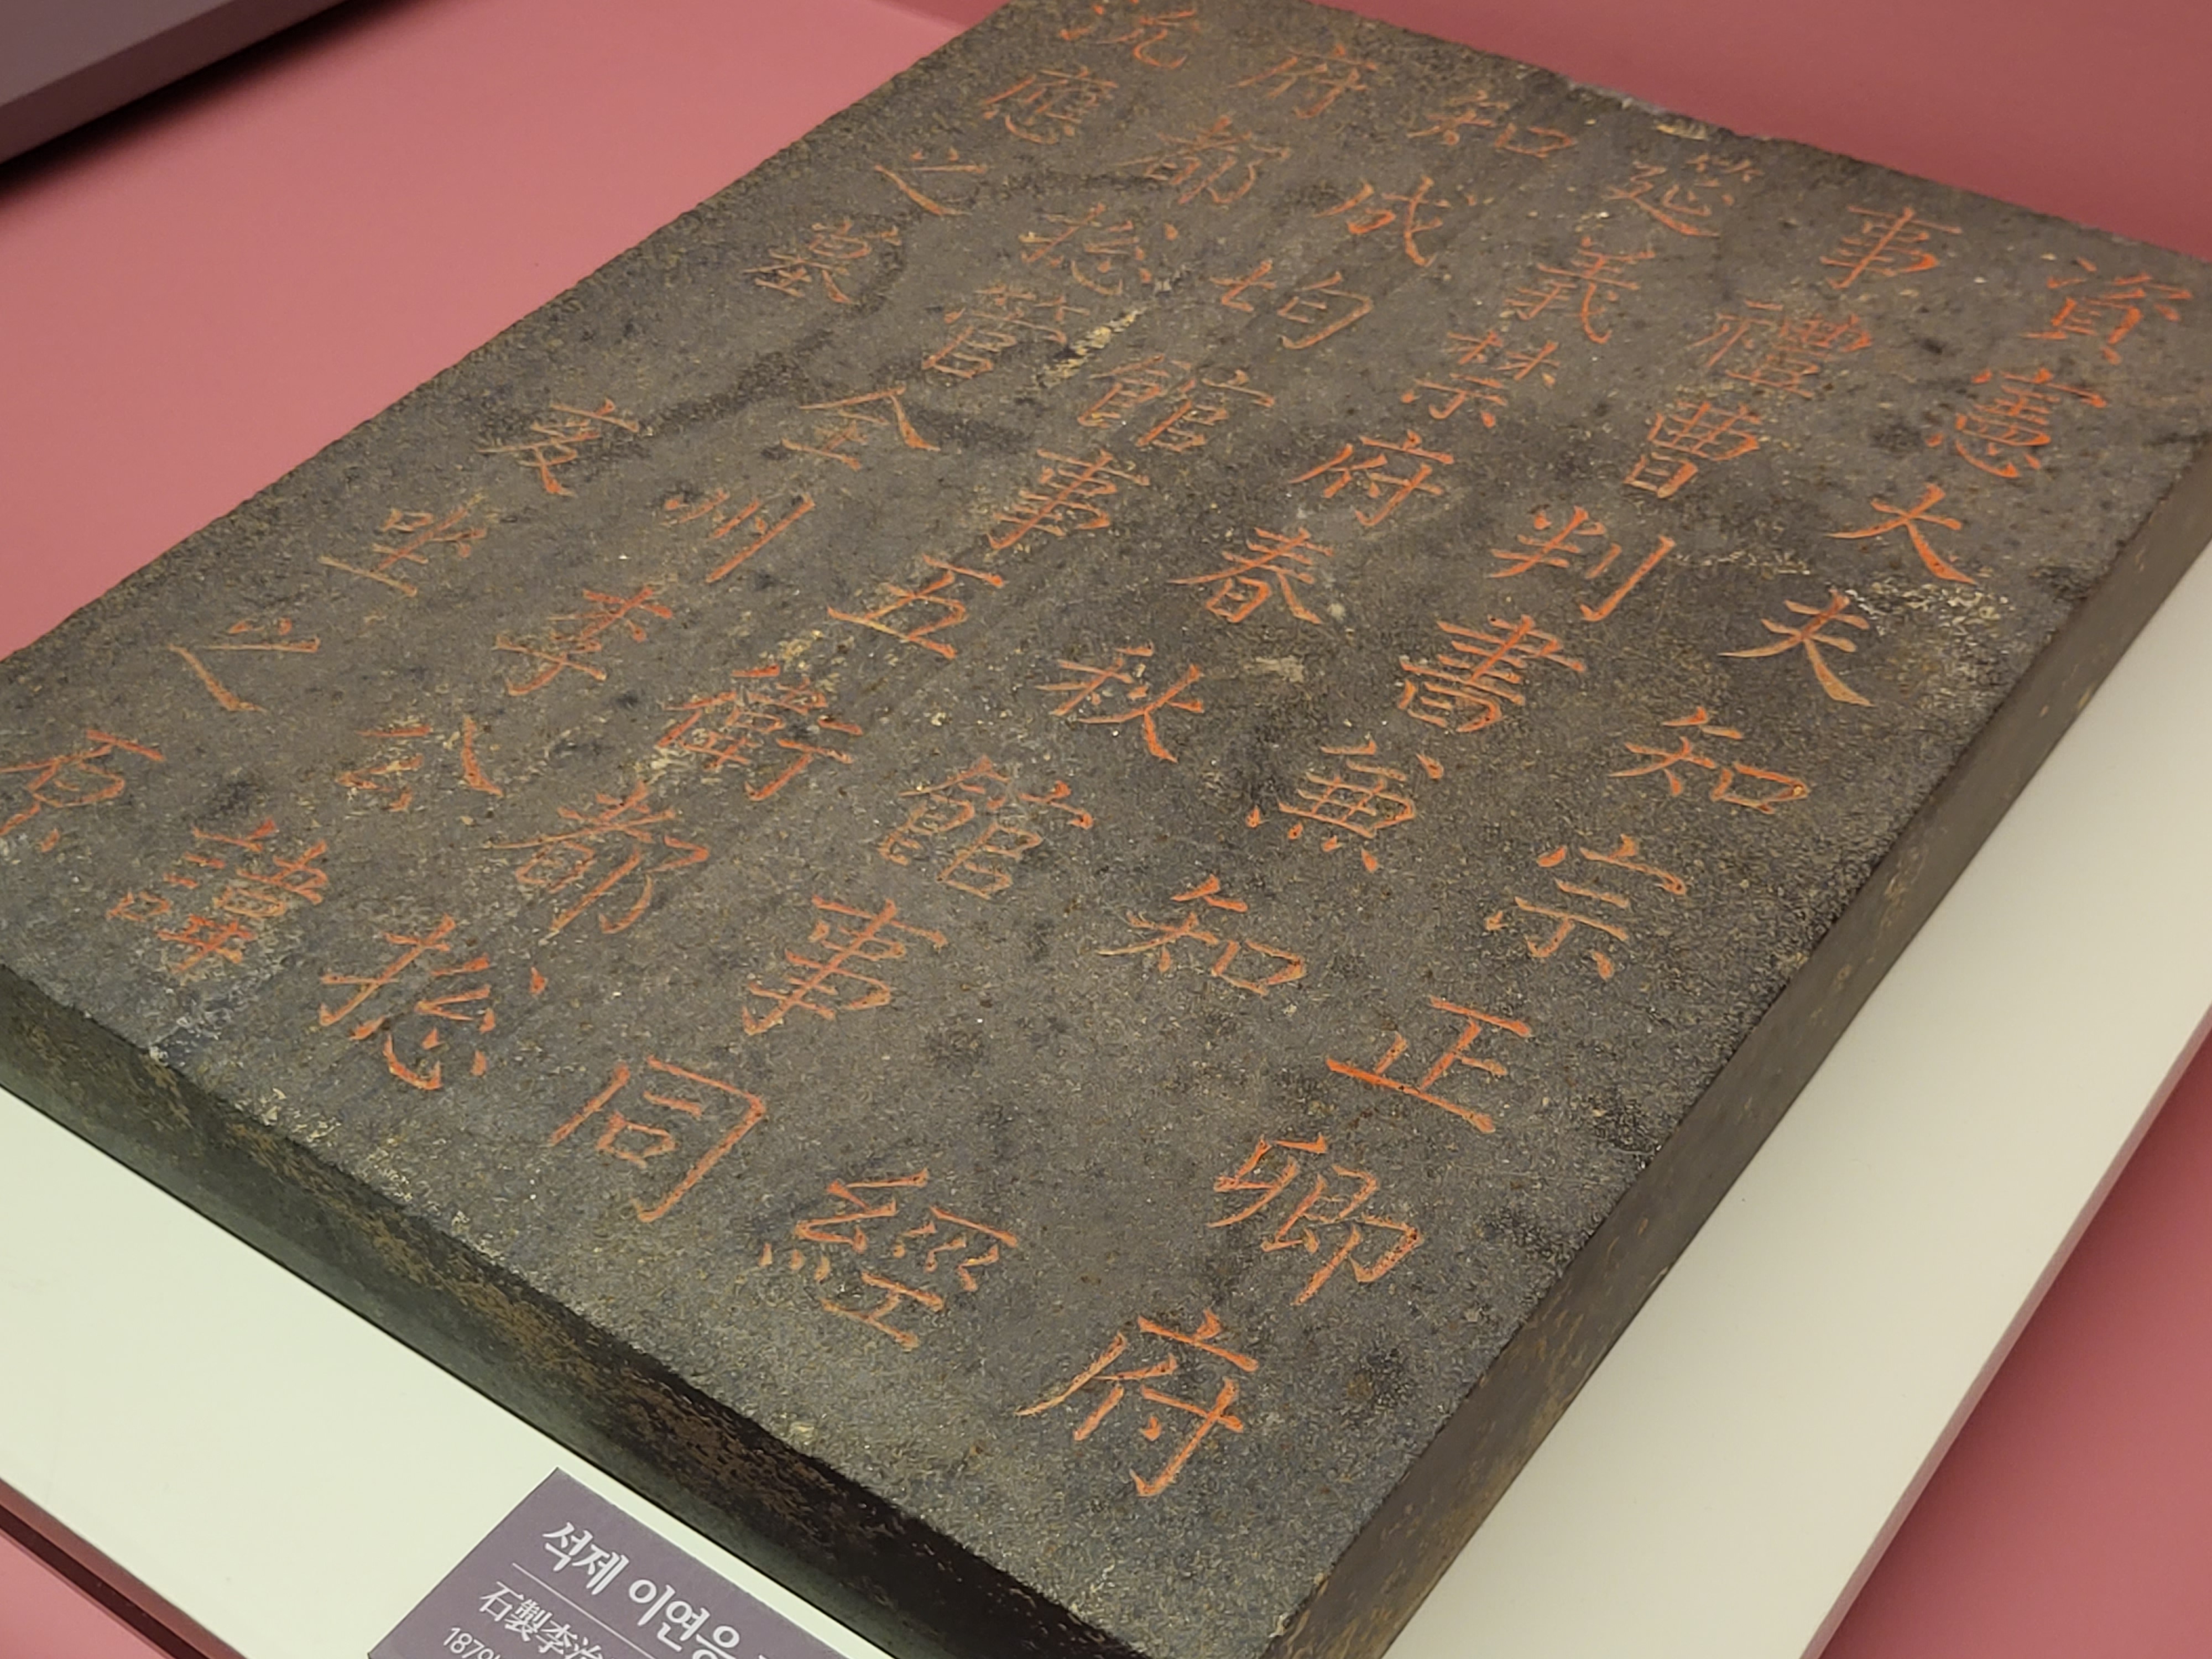 資憲大夫知宗正卿府
事禮曹判書兼知經
筵義禁府春秋館事同
知成均館事五衛都摠
府都摠管全州李公諱
沇應之墓 亥坐之原
석제 이연응
石製李